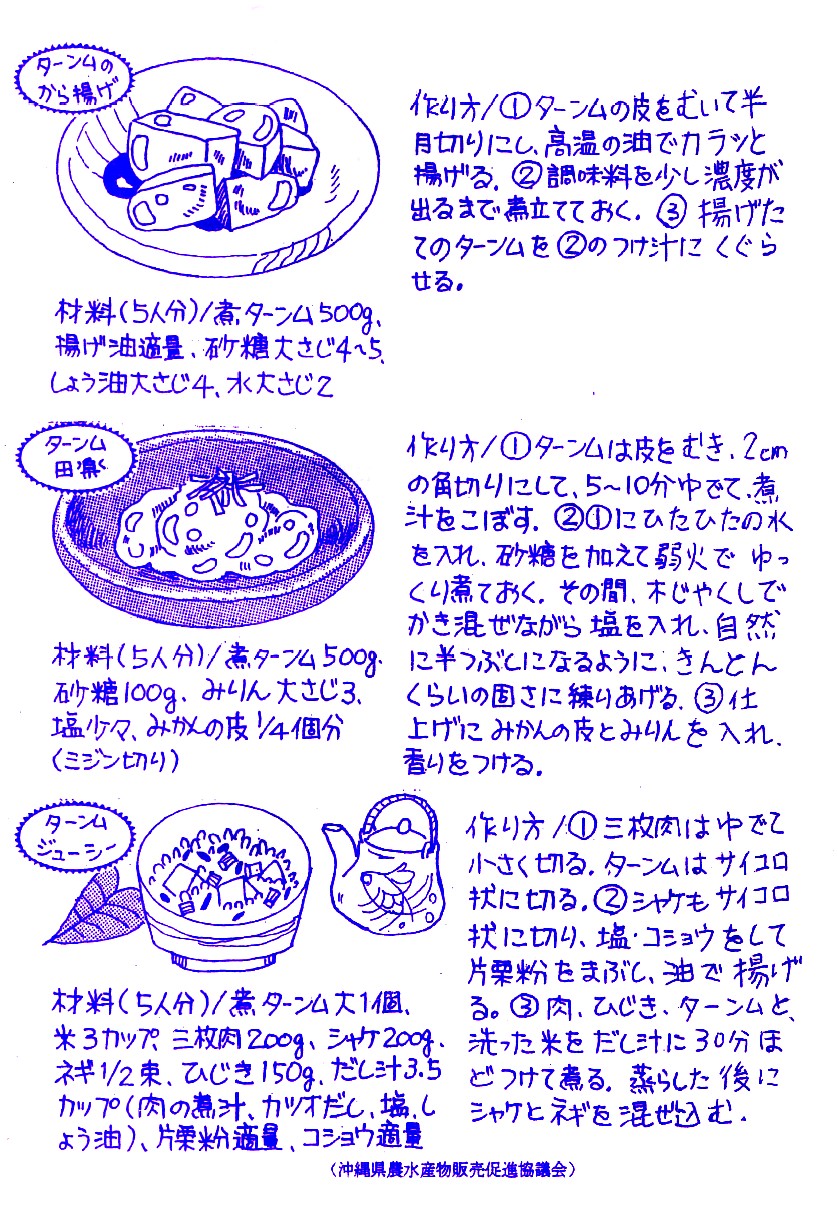 ターンムの
から揚げ
材料(5人分)/煮ターンム500g、
揚げ油適量、砂糖大さじ4~5、
しょう油大さじ4、水大さじ2
作り方/①ターンムの皮をむいて半
月切りにし、高温の油でカラッと
揚げる。②調味料を少し濃度が
出るまで煮立てておく。③揚げた
てのターンムを②のつけ汁にくぐら
せる。
ターンム
田楽
材料(5人分)/煮ターンム500g、
砂糖100g、みりん大さじ3、
塩少々、みかんの皮1/4個分
(ミジン切り)
作り方/①ターンムは皮をむき、2cm
の角切りにして、5~10分ゆでて、煮
汁をこぼす。②①にひたひたの水
を入れ、砂糖を加えて弱火でゆっ
くり煮ておく。その間、木じゃくしで
かき混ぜながら塩を入れ、自然
に半つぶしになるように、きんとん
くらいの固さに練りあげる。③仕
上げにみかんの皮とみりんを入れ、
香りをつける。
ターンム
ジューシー
材料(5人分)/煮ターンム大1個、
米3カップ、三枚肉200g、シャケ200g、
ネギ1/2束、ひじき150g、だし汁3.5
カップ(肉の煮汁、カツオだし、塩、し
ょう油)、片栗粉適量、コショウ適量
作り方/①三枚肉はゆでて
小さく切る。ターンムはサイコロ
状に切る。②シャケもサイコロ
状に切り、塩・コショウをして
片栗粉をまぶし、油で揚げ
る。③肉、ひじき、ターンムと、
洗った米をだし汁に30分ほ
どつけて煮る。蒸らした後に
シャケとネギを混ぜ込む。
(沖縄県農水産物販売促進協議会)